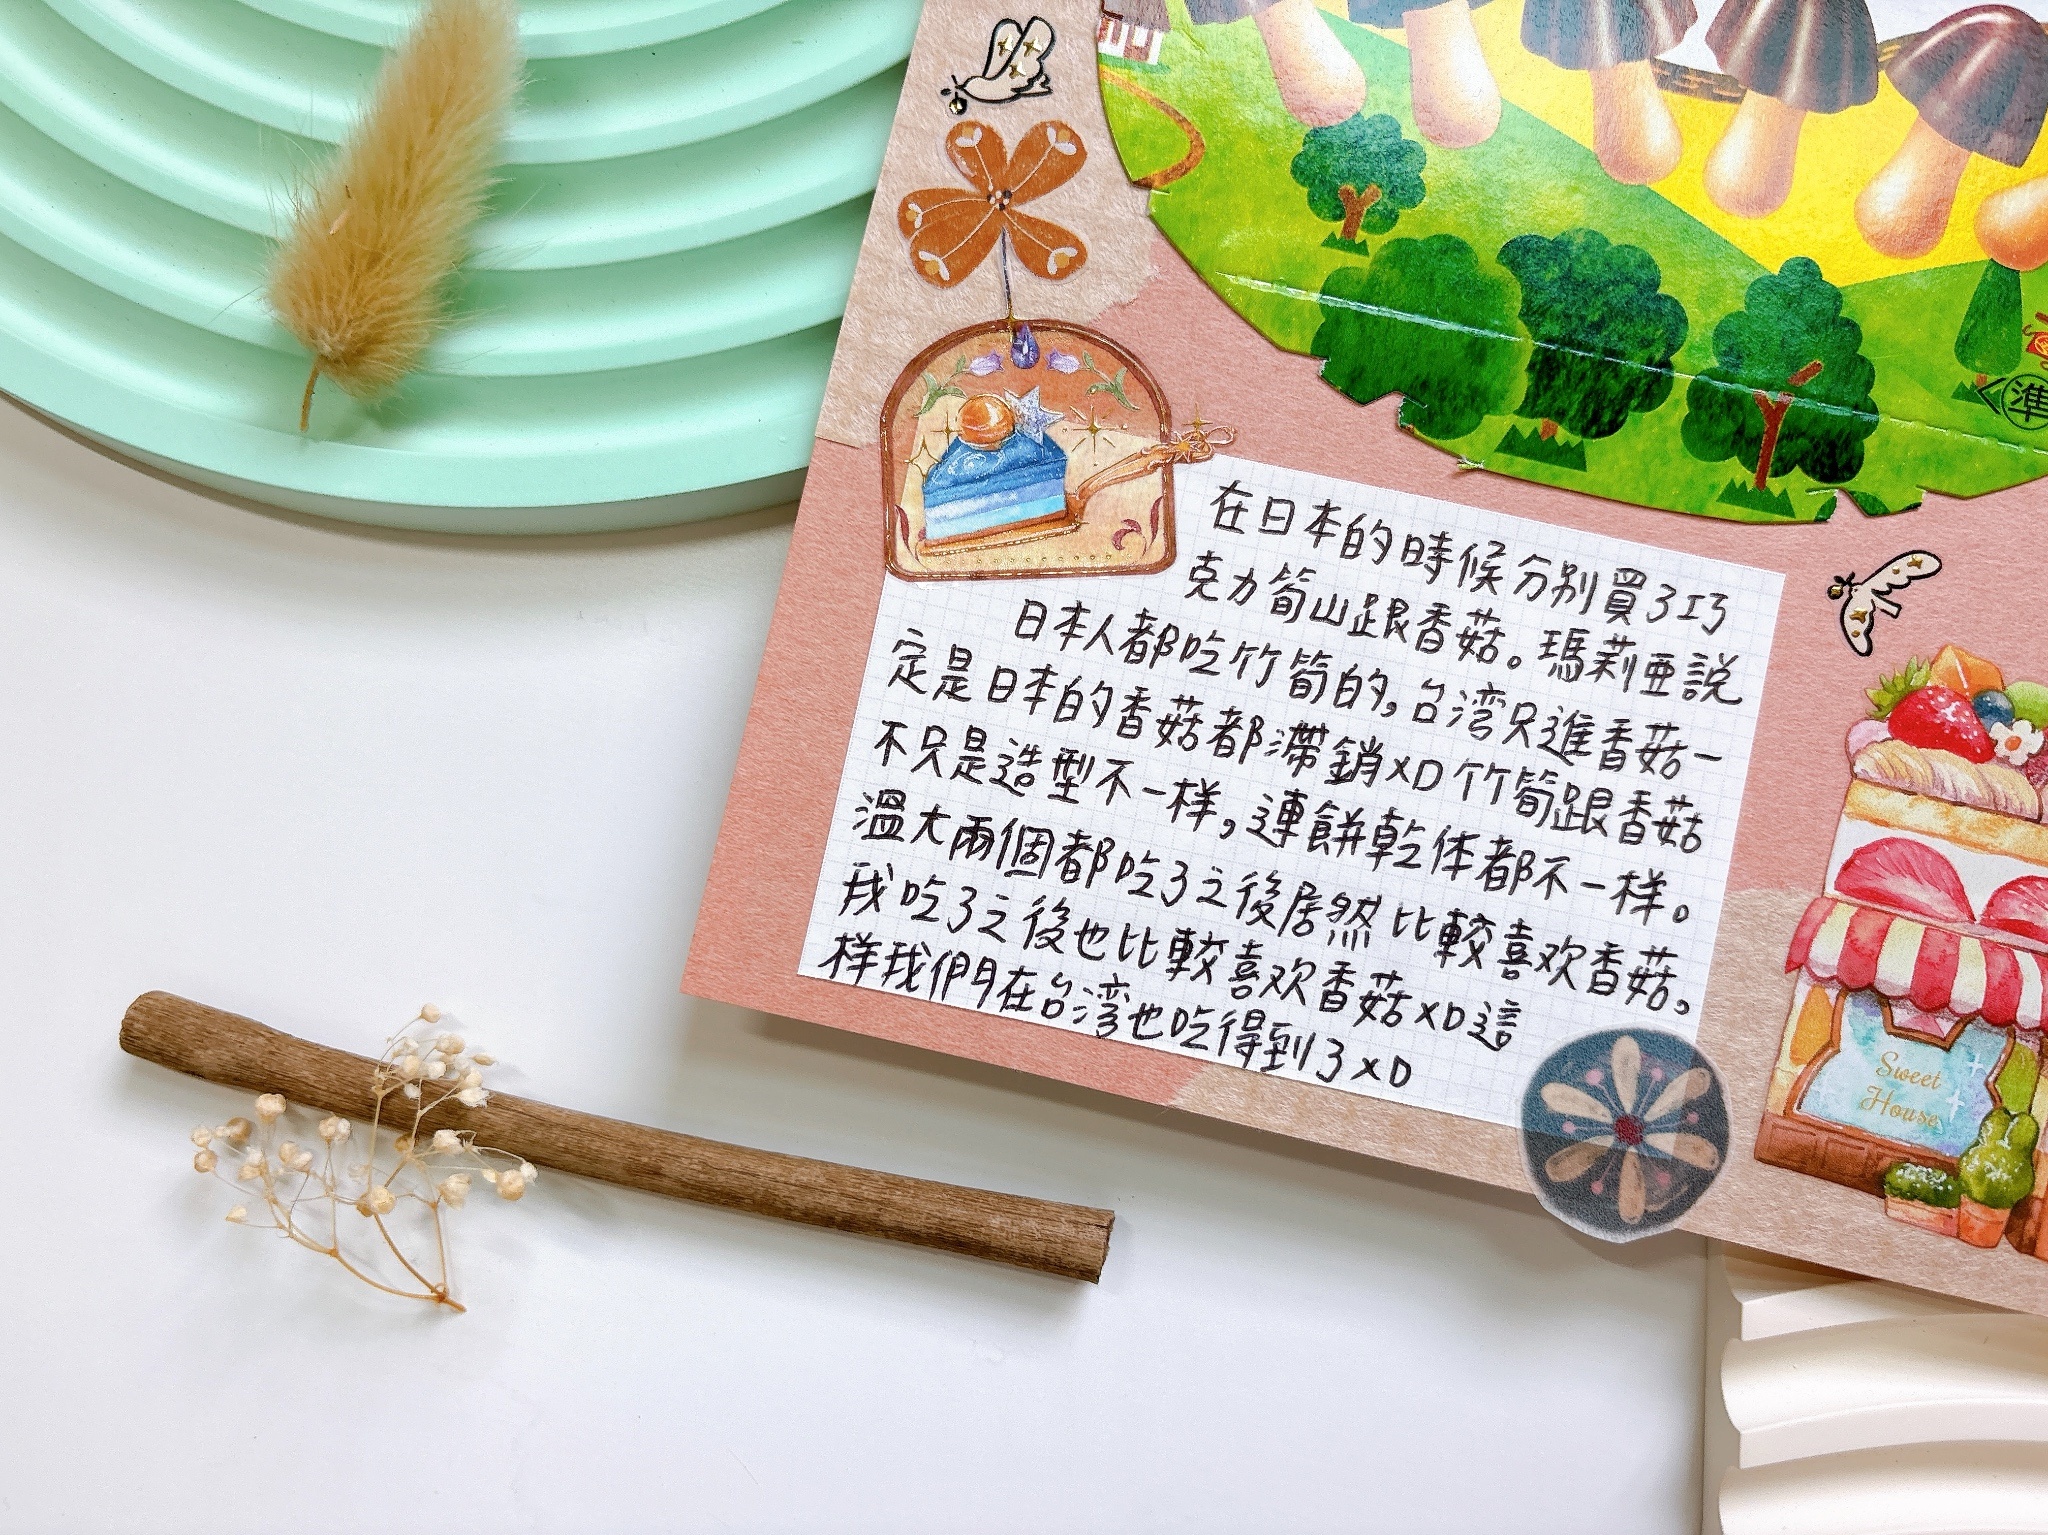 準
在日本的時候分別買了巧
克力筍山跟香菇。瑪莉亜說
日本人都吃竹筍的，台湾只進香菇一
定是日本的香菇都滯銷XD竹筍跟香菇
不只是造型不一樣，連餅乾体都不一样。
溫大兩個都吃了之後居然比較喜欢香菇，
我吃了之後也比較喜欢香菇XD這
样我們在台湾也吃得到了XD
Sweet
House